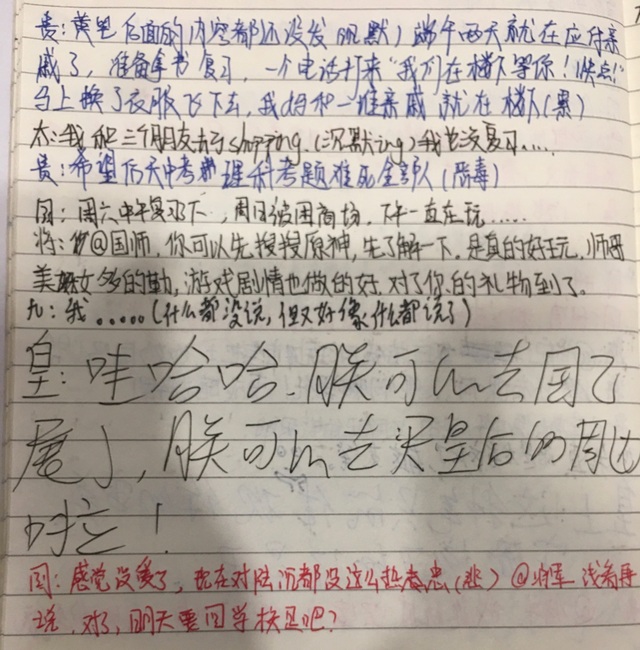 贵:黄埋后面的内容都还没发(沉默)端午两天就在应付亲
戚了,准备拿书复习,一个电话打来“我们在楼下等你!快点!”
马上换了衣服飞下去,我妈和一堆亲戚就在楼下(累)
太:我和三个朋友去了shopping.(沉默ing)我也没复习....
贵:希望后天中考 理科考题难死全部人(恶毒)
国:周六中午复习下,周日给困商场,下午一直在玩......
将:@国师,你可以先搜搜原神,先了解一下.是真的好玩,师哥
美女多的勒,游戏剧情也做的好.对了你的礼物到了。
九:我.....(什么都没说,但又好像什么都说了)
皇:哇哈哈.朕可以去国乙
展了,朕可以去买皇后的周边
啦!
国:感觉没爱了,现在对陆沉都没这么热衷忠(悲)@将军 浅希再
说.对了,明天要回学校是吧?